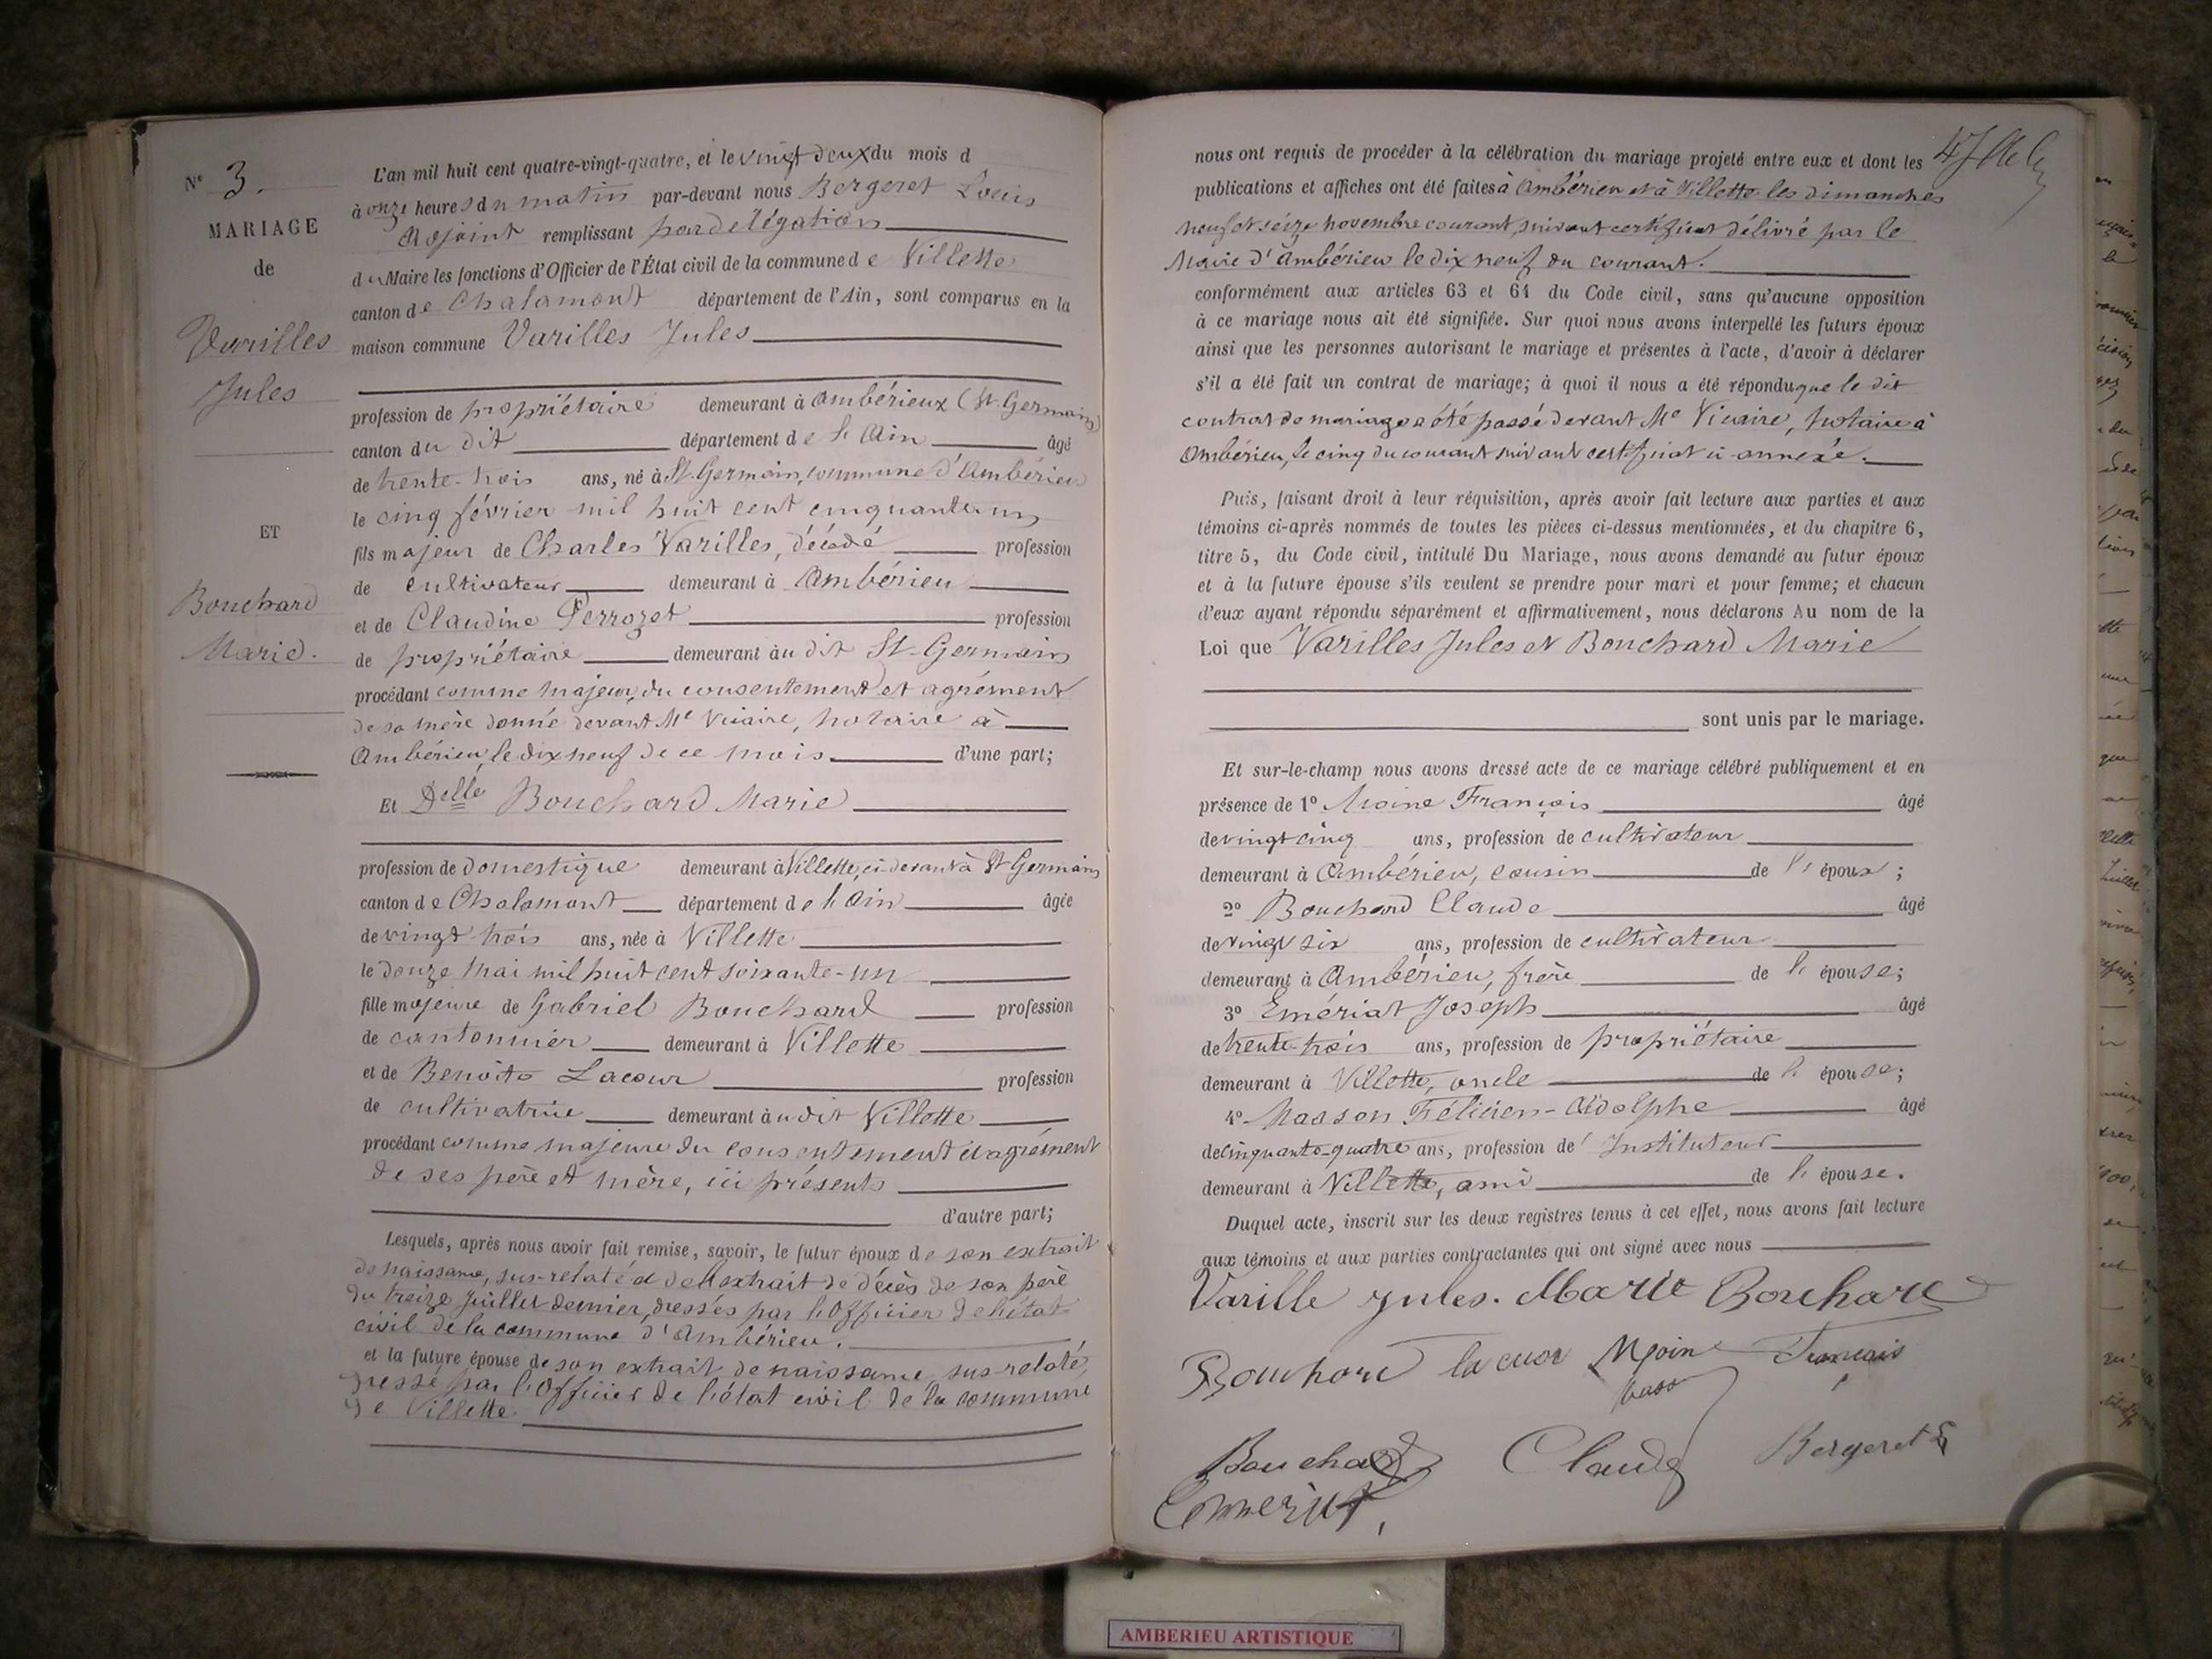 N° 3.
MARIAGE
de
Varilles
Jules
ET
Bouchard
Marie.
L'an mil huit cent quatre-vingt-quatre, et le vingt deux du mois d
à onze heures du matin par-devant nous Bergeret Louis
Adjoint remplissant par délégation
du Maire les fonctions d'Officier de l'État civil de la commune de Villette
canton de Chalamont département de l'Ain, sont comparus en la
maison commune Varilles Jules
profession de propriétaire demeurant à Ambérieux (St-Germain)
canton du dit département de l'Ain âgé
de trente-trois ans, né à St-Germain, commune d'Ambérieu
le cinq février mil huit cent cinquante-un
fils majeur de Charles Varilles, décédé profession
de cultivateur demeurant à Ambérieu
et de Claudine Perrozet profession
de propriétaire demeurant au dit St-Germain
procédant comme majeur, du consentement et agrément
de sa mère donné devant Me Vicaire, notaire à
Ambérieu, le dix neuf de ce mois. d'une part;
Et Delle Bouchard Marie
profession de domestique demeurant à Villette, ci-devant à St Germain
canton de Chalamont département de l'Ain âgée
de vingt trois ans, née à Villette
le douze mai mil huit cent soixante-un
fille majeure de Gabriel Bouchard profession
de cantonnier demeurant à Villette
et de Benoîte Lacour profession
de cultivatrice demeurant au dit Villette
procédant comme majeure du consentement et agrément
de ses père et mère, ici présents
d'autre part;
Lesquels, après nous avoir fait remise, savoir, le futur époux de son extrait
de naissance, sus-relaté et de l'extrait de décès de son père
du treize Juillet dernier, dressés par l'Officier de l'état
civil de la commune d'Ambérieu.
et la future épouse de son extrait de naissance, sus relaté,
dressé par l'Officier de l'état civil de la commune
de Villette
nous ont requis de procéder à la célébration du mariage projeté entre eux et dont les
publications et affiches ont été faites à Ambérieu et à Villette les dimanches
neuf et seize novembre courant, suivant certificat délivré par le
Maire d'Ambérieu le dix neuf du courant.
conformément aux articles 63 et 64 du Code civil, sans qu'aucune opposition
à ce mariage nous ait été signifiée. Sur quoi nous avons interpellé les futurs époux
ainsi que les personnes autorisant le mariage et présentes à l'acte, d'avoir à déclarer
s'il a été fait un contrat de mariage; à quoi il nous a été répondu que le dit
contrat de mariage a été passé devant Me Vicaire, notaire à
Ambérieu, le cinq du courant suivant certificat ci-annexé.
Puis, faisant droit à leur réquisition, après avoir fait lecture aux parties et aux
témoins ci-après nommés de toutes les pièces ci-dessus mentionnées, et du chapitre 6,
titre 5, du Code civil, intitulé Du Mariage, nous avons demandé au futur époux
et à la future épouse s'ils veulent se prendre pour mari et pour femme; et chacun
d'eux ayant répondu séparément et affirmativement, nous déclarons Au nom de la
Loi que Varilles Jules et Bouchard Marie
sont unis par le mariage.
Et sur-le-champ nous avons dressé acte de ce mariage célébré publiquement et en
présence de 1° Moine François âgé
de vingt cinq ans, profession de cultivateur
demeurant à Ambérieu, cousin de l'époux;
2° Bouchard Claude âgé
de vingt six ans, profession de cultivateur
demeurant à Ambérieu, frère de l'épouse;
3° Emériat Joseph âgé
de trente-trois ans, profession de propriétaire
demeurant à Villette, oncle de l'épouse;
4° Masson Félicien-Adolphe âgé
de cinquante-quatre ans, profession de Instituteur
demeurant à Villette, ami de l'épouse.
Duquel acte, inscrit sur les deux registres tenus à cet effet, nous avons fait lecture
aux témoins et aux parties contractantes qui ont signé avec nous
Varille jules. Marie Bouchard
Bouhard la cuor Moine Francais
Bouchard Claude Bergeret L
Emmeriat
AMBERIEU ARTISTIQUE